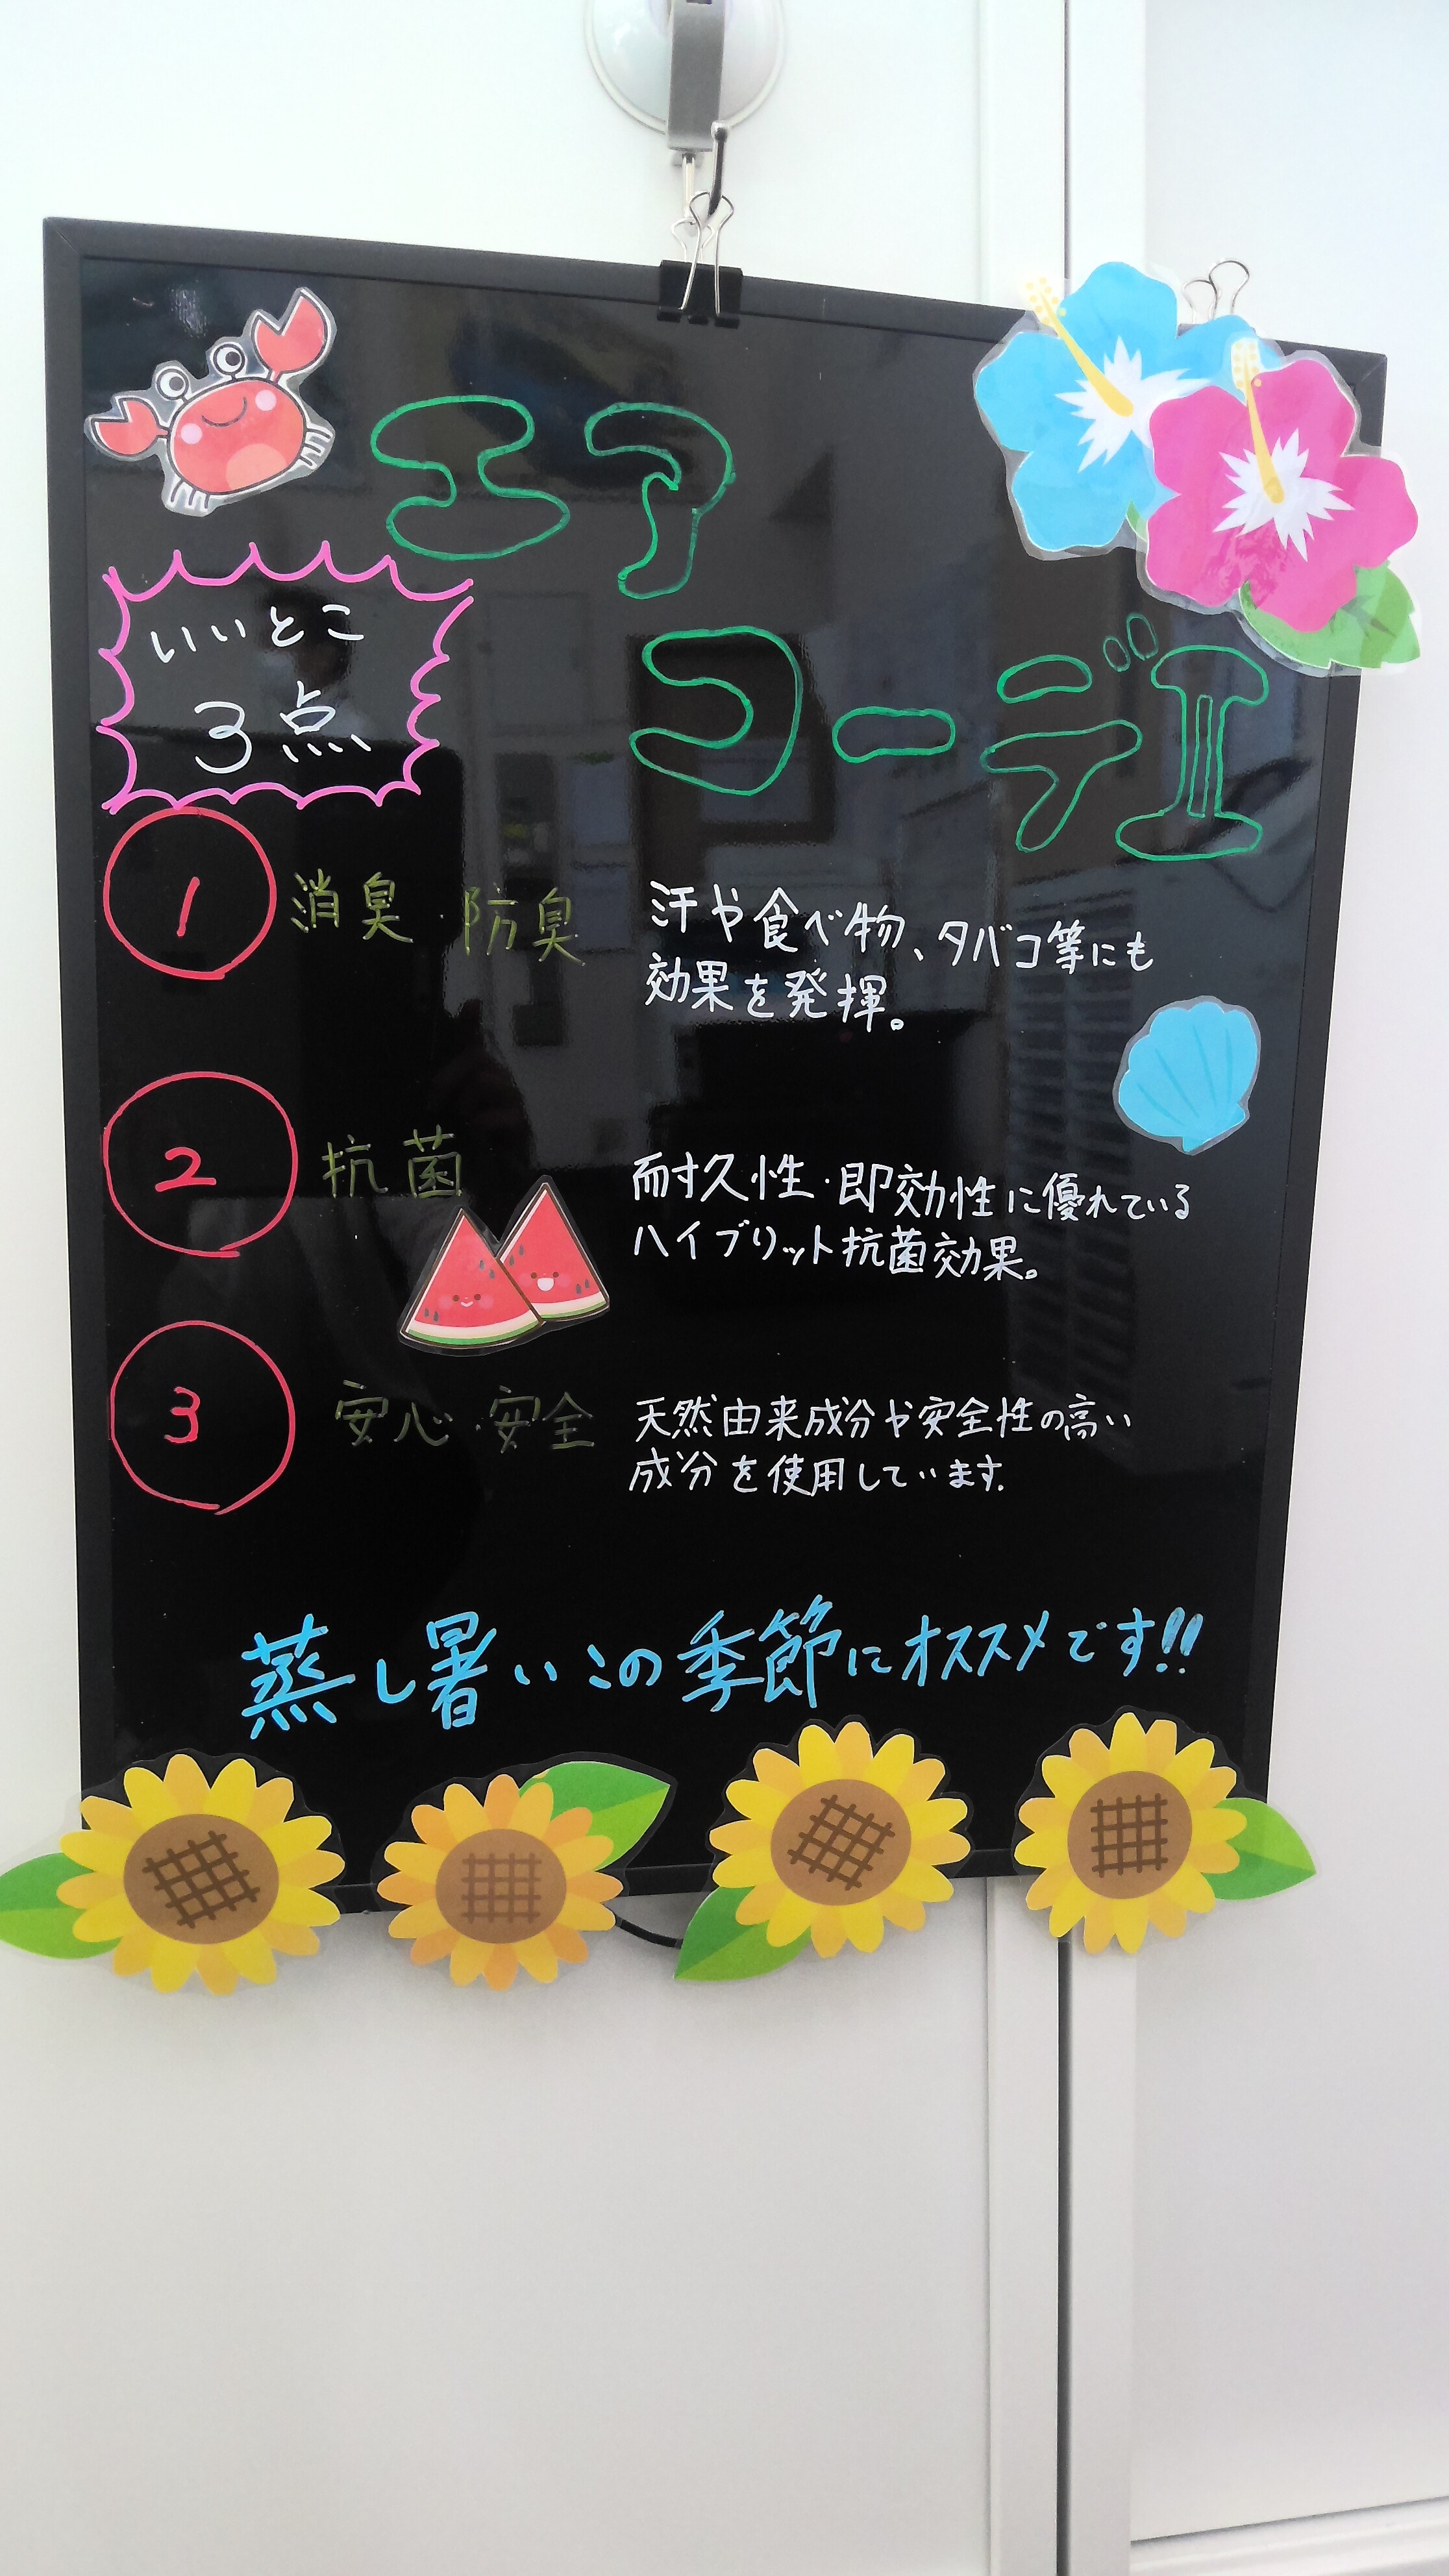 エア
コーデⅡ
いいとこ
3点
1 消臭・防臭
汗や食べ物、タバコ等にも
効果を発揮。
2 抗菌
耐久性・即効性に優れている
ハイブリット抗菌効果。
3 安心・安全
天然由来成分や安全性の高い
成分を使用しています。
蒸し暑いこの季節にオススメです!!